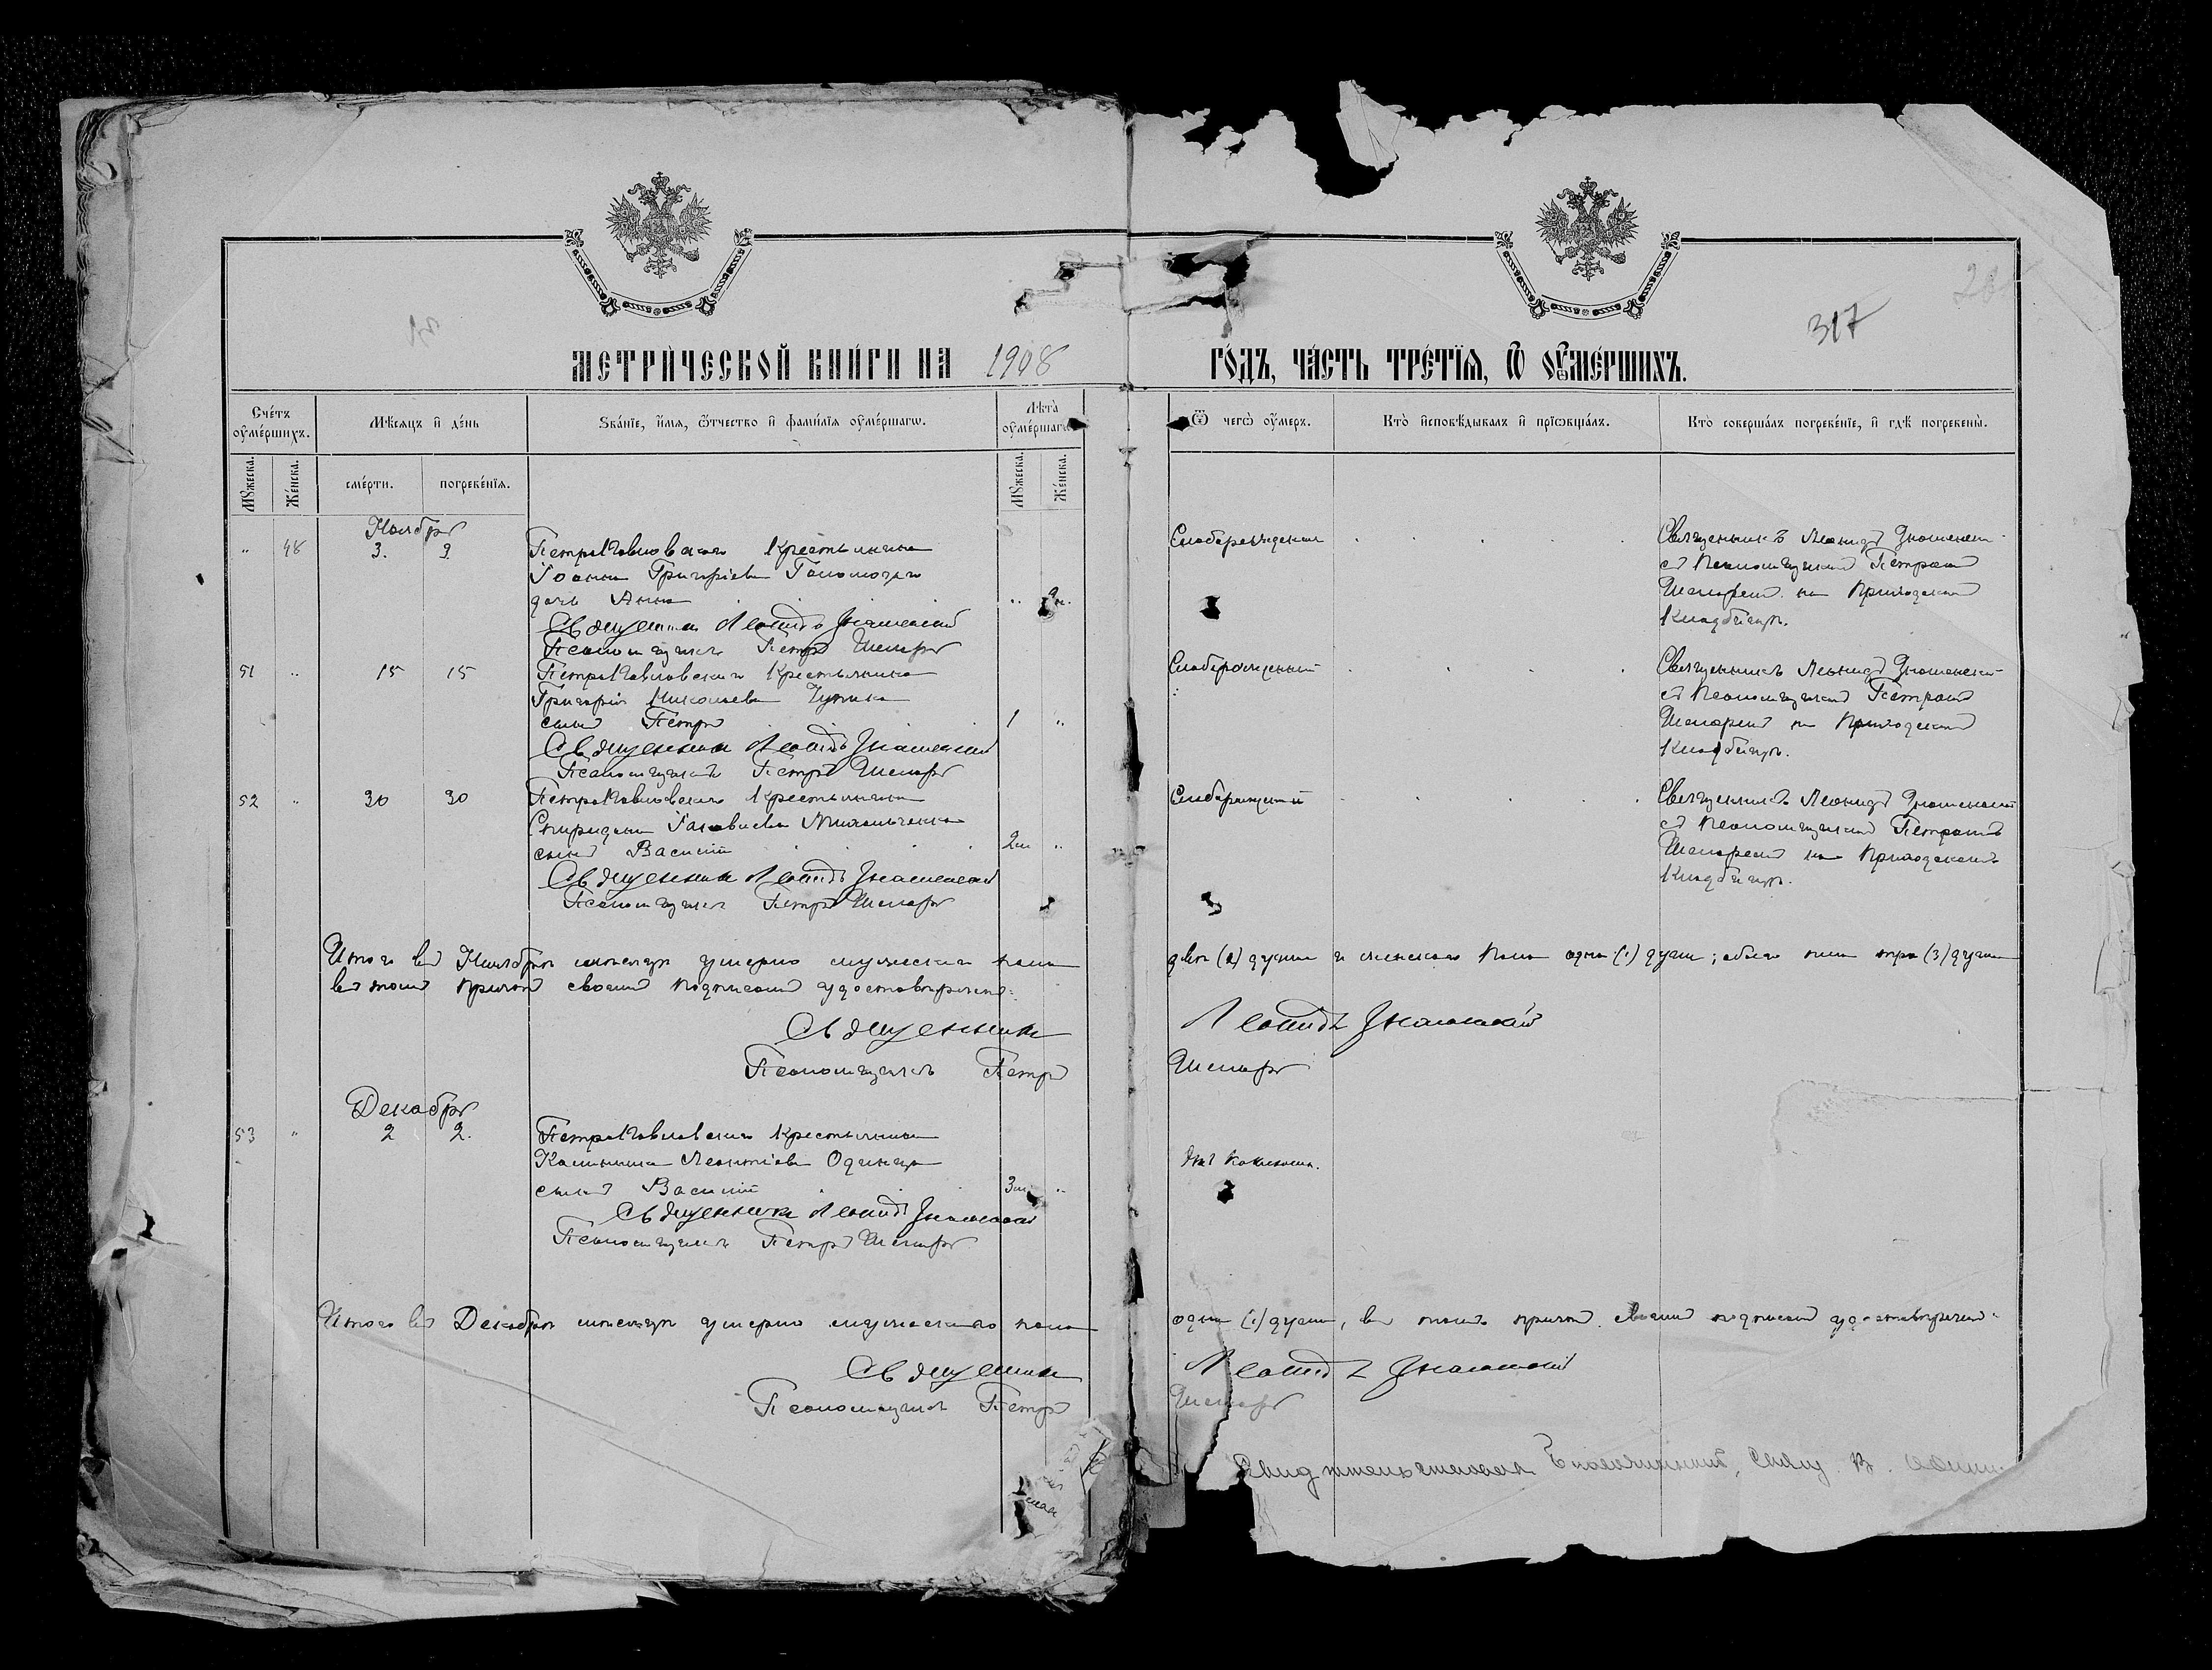 317
МЕТРИЧЕСКОЙ КНИГИ НА 1908 ГОДЪ, ЧАСТЬ ТРЕТІЯ, Ѿ ОУМЕРШИХЪ.
Счетъ оумершихъ.
Мѣсяцъ и день
Званіе, имя, отчество и фамилія оумершагѡ.
Лѣта оумершагѡ
Ѿ чегѡ оумеръ.
Кто исповѣдывалъ и пріѡбщалъ.
Кто совершалъ погребеніе, и гдѣ погребены.
Мужеска.
Женска.
смерти.
погребенія.
Мужеска.
Женска.
Ноябрь
" 48 3. Петропавловскаго Крестьянина
Іоанна Григоріева
дочь Анна
Священникъ Леонидъ Знаменскій
Псаломщикъ Петръ
Слаборожденная
Священникъ Леонидъ Знаменскій
съ Псаломщикомъ Петромъ
на Приходскомъ
Кладбищѣ.
51 " 15 15 Петропавловскаго Крестьянина
Григорія Николаева
сынъ Петръ 1 "
Священникъ Леонидъ Знаменскій
Псаломщикъ Петръ
Слаборожденный
Священникъ Леонидъ Знаменскій
съ Псаломщикомъ Петромъ
на Приходскомъ
Кладбищѣ.
52 " 30 30 Петропавловскаго Крестьянина
Спиридона
сынъ Василій 2м "
Священникъ Леонидъ Знаменскій
Псаломщикъ Петръ
Слаборожденный
Священникъ Леонидъ Знаменскій
съ Псаломщикомъ Петромъ
на Приходскомъ
Кладбищѣ.
Итого въ Ноябрѣ мѣсяцѣ умерло мужескаго пола двѣ (2) души и женскаго пола одна (1) душа; обоего пола три (3) души
въ томъ причтъ своимъ подписомъ удостовѣряемъ:
Священникъ Леонидъ Знаменскій
Псаломщикъ Петръ
Декабрь
53 " 2 2. Петропавловскаго Крестьянина
Леонтіева Одинца
сынъ Василій 3м "
Священникъ Леонидъ Знаменскій
Псаломщикъ Петръ
Отъ коклюша.
Итого въ Декабрѣ мѣсяцѣ умерло мужескаго пола одна (1) душа, въ томъ причтъ своимъ подписомъ удостовѣряемъ:
Священникъ Леонидъ Знаменскій
Псаломщикъ Петръ
Свидѣтельствовалъ Благочинный, Свящ. В.